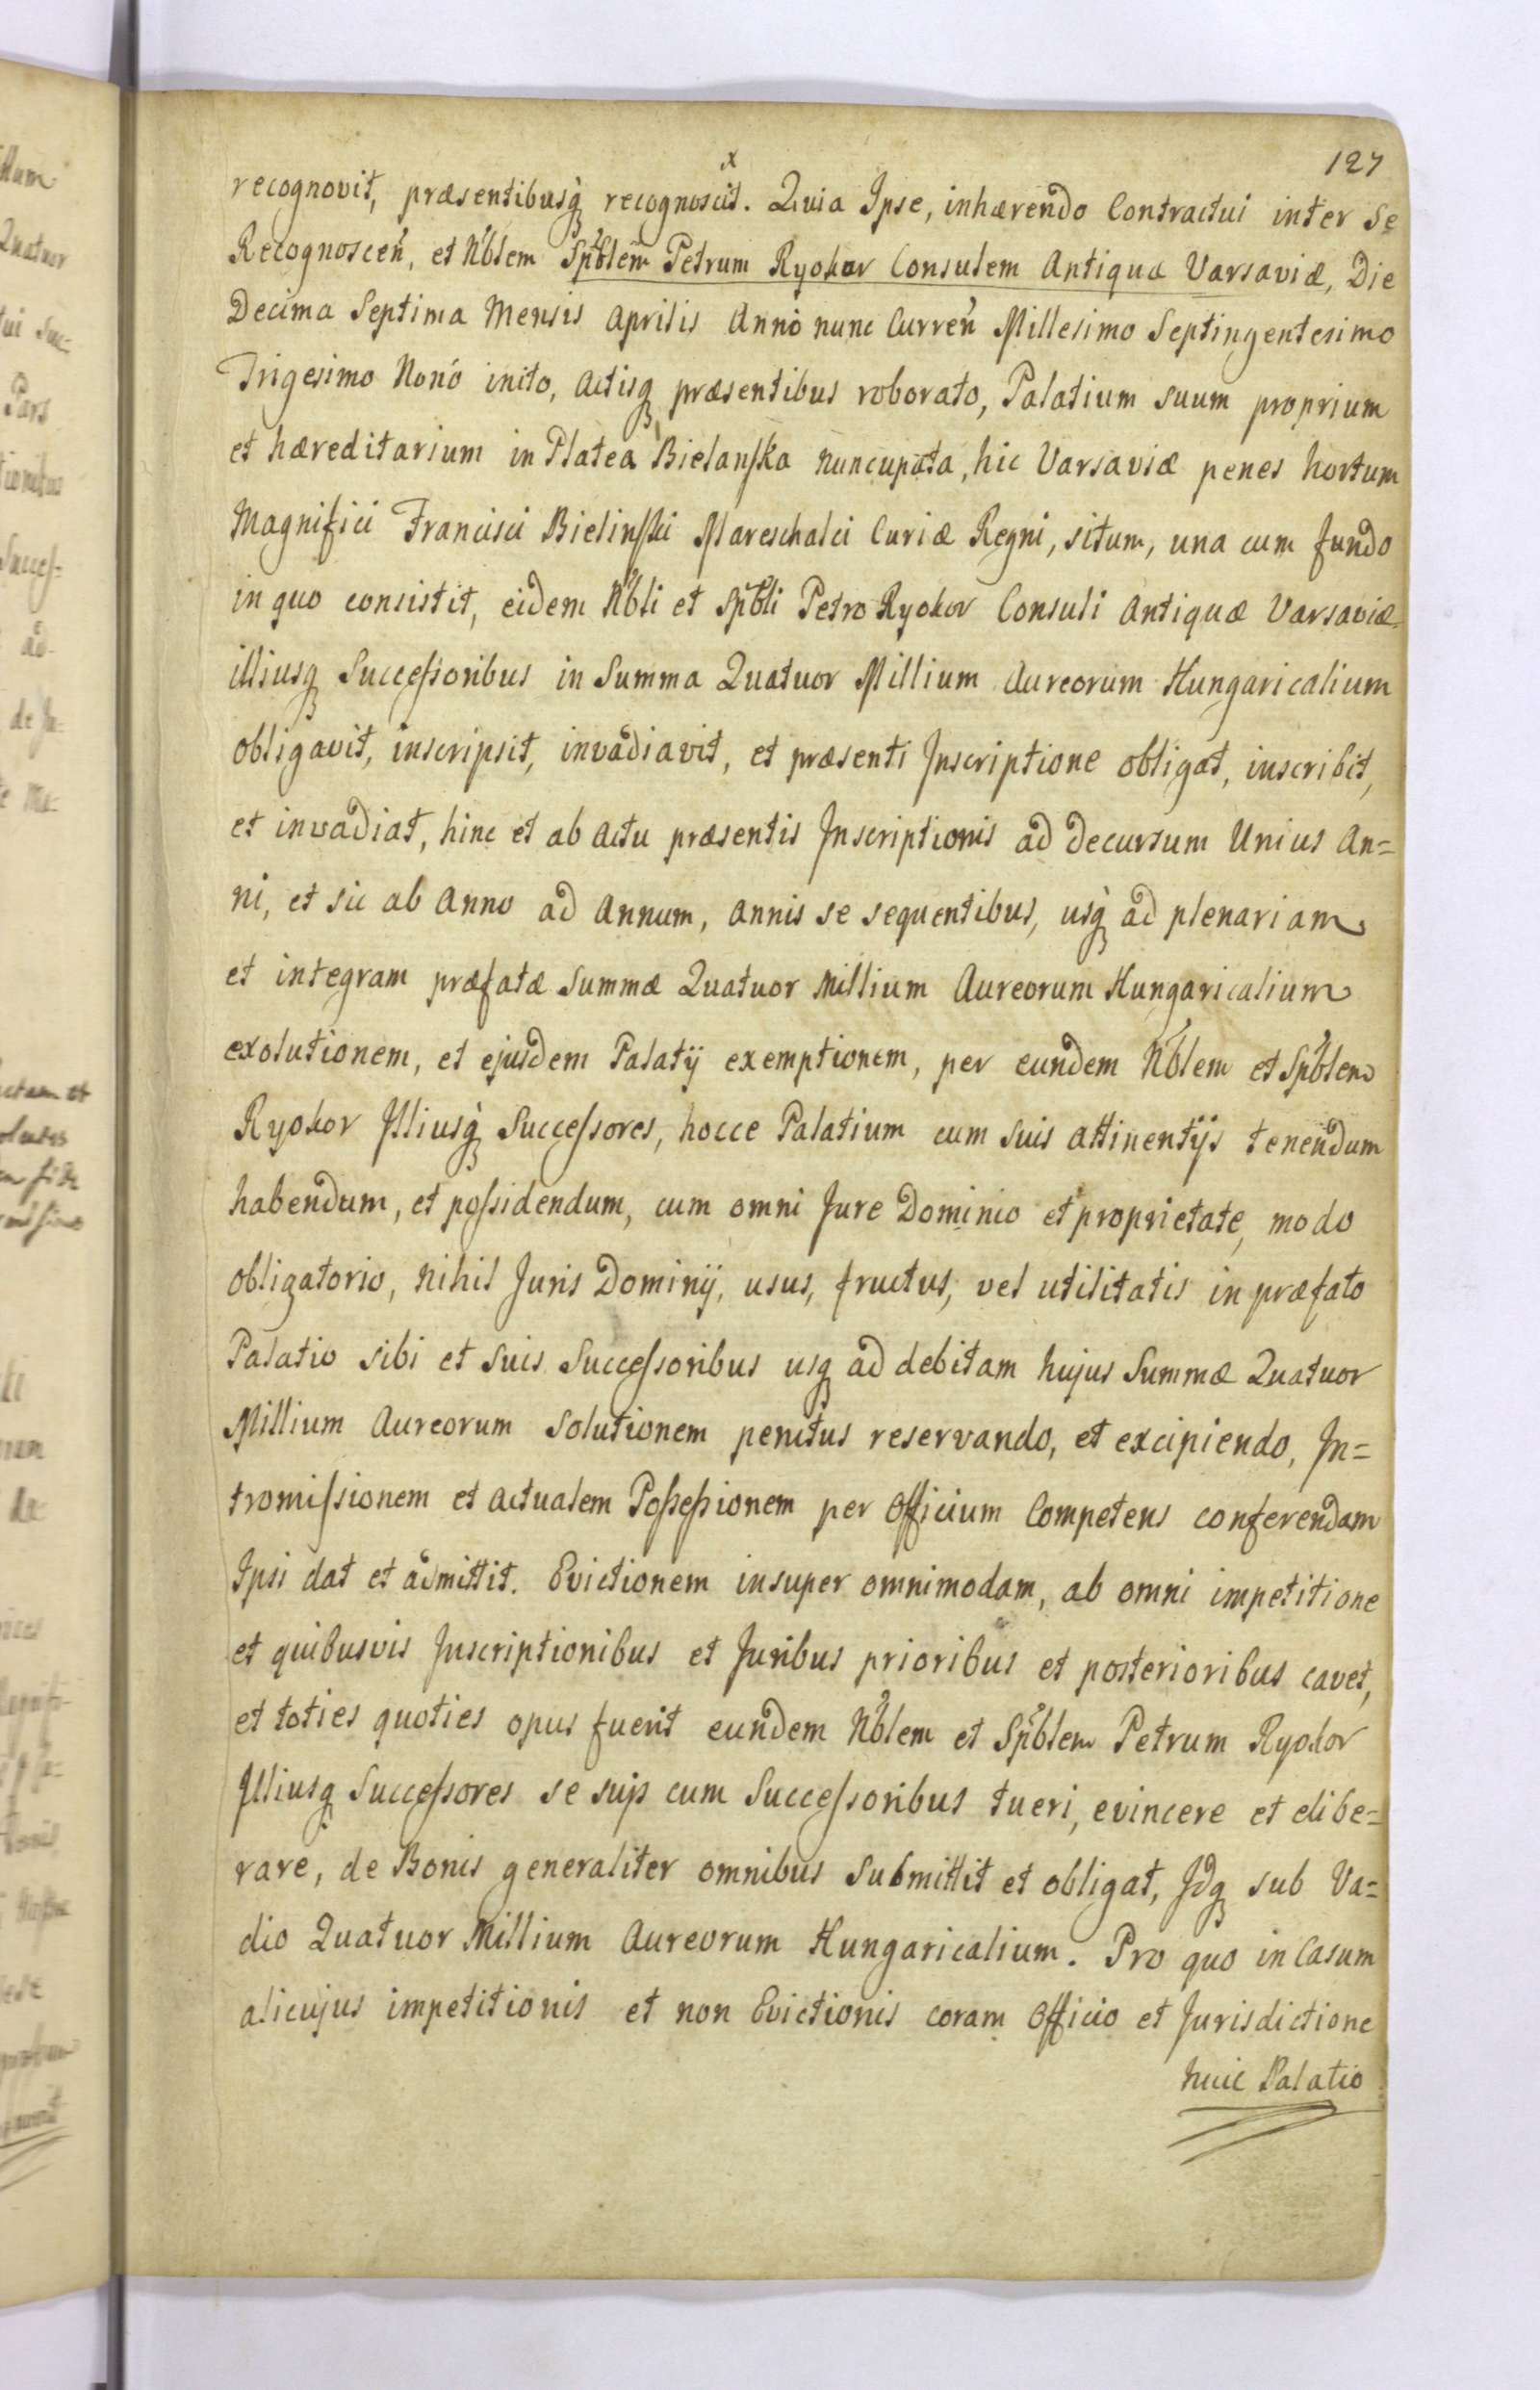 127
recognovit, præsentibusq́ recognoscit. Quia Ipse, inhærendo Contractui inter Se
Recognosceń, et Nblem Spblem Petrum Ryokor Consulem Antiquæ Varsaviæ, Die
Decima Septima Mensis Aprilis Anno nunc Curreń Millesimo Septingentesimo
Trigesimo Nonó inito, Actisq præsentibus roborato, Palatium suum proprium
et hæreditarium in Platea Bielanska nuncupata, hic Varsaviæ penes hortum
Magnifici Francisci Bielinski Mareschalci Curiæ Regni, situm, una cum fundo
in quo consistit, eidem Nbli et Spbli Petro Ryokor Consuli Antiquæ Varsaviæ
illiusq Successoribus in Summa Quatuor Millium Aureorum Hungaricalium
obligavit, inscripsit, invadiavit, et præsenti Inscriptione obligat, inscribit,
et invadiat, hinc et ab actu præsentis Inscriptionis ad decursum Unius An=
ni, et sic ab Anno ad Annum, annis se sequentibus, usq́ ad plenariam
et integram præfatæ Summæ Quatuor Millium Aureorum Hungaricalium
exolutionem, et ejusdem Palatÿ exemptionem, per eundem Nblem et Spblem
Ryokor Illiusq́ Successores, hocce Palatium cum suis attinentÿs tenendum
habendum, et possidendum, cum omni Jure Dominio et proprietate, modo
obligatorio, nihil Juris Dominÿ, usus, fructus, vel utilitatis in præfato
Palatio sibi et suis Successoribus usq ad debitam hujus Summæ Quatuor
Millium Aureorum solutionem penitus reservando, et excipiendo, In=
tromissionem et actualem Possessionem per Officium Competens conferendam
Ipsi dat et admittit. Evictionem insuper omnimodam, ab omni impetitione
et quibusvis Inscriptionibus et Juribus prioribus et posterioribus cavet,
et toties quoties opus fuerit eundem Nblem et Spblem Petrum Ryokor
Illiusq Successores se suis cum Successoribus tueri, evincere et elibe=
rare, de Bonis generaliter omnibus Submittit et obligat, Idq sub Va=
dio Quatuor Millium Aureorum Hungaricalium. Pro quo in Casum
alicujus impetitionis et non Evictionis coram Officio et Jurisdictione
huic Palatio